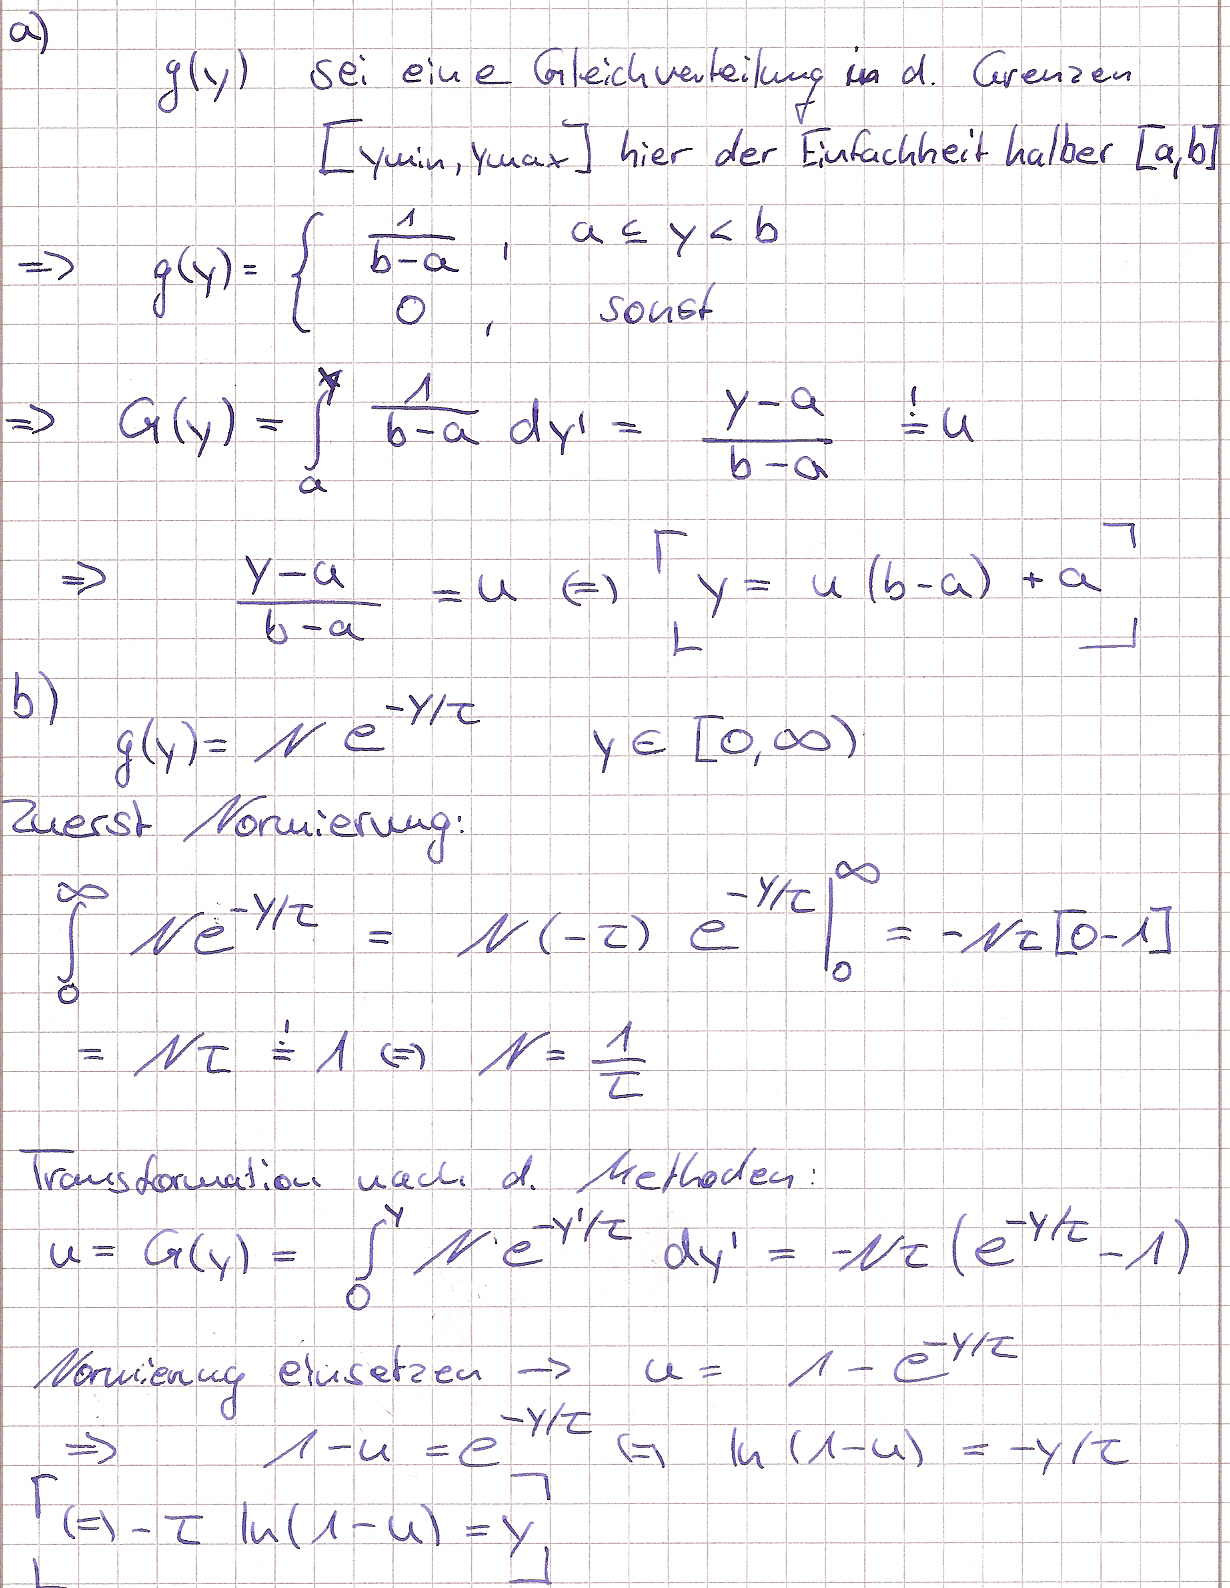 a)
g(y) sei eine Gleichverteilung in d. Grenzen
[ymin, ymax] hier der Einfachheit halber [a,b]
=> g(y) = { 1/(b-a) , a ≤ y < b
0 , sonst
=> G(y) = ∫_a^y 1/(b-a) dy' = (y-a)/(b-a) =! u
=> (y-a)/(b-a) = u <=> y = u (b-a) + a
b)
g(y) = N e^(-y/τ) y ∈ [0,∞)
Zuerst Normierung:
∫_0^∞ N e^(-y/τ) = N (-τ) e^(-y/τ) |_0^∞ = -Nτ [0-1]
= Nτ =! 1 <=> N = 1/τ
Transformation nach d. Methoden:
u = G(y) = ∫_0^y N e^(-y'/τ) dy' = -Nτ (e^(-y/τ) - 1)
Normierung einsetzen → u = 1 - e^(-y/τ)
=> 1-u = e^(-y/τ) <=> ln (1-u) = -y/τ
<=> -τ ln(1-u) = y